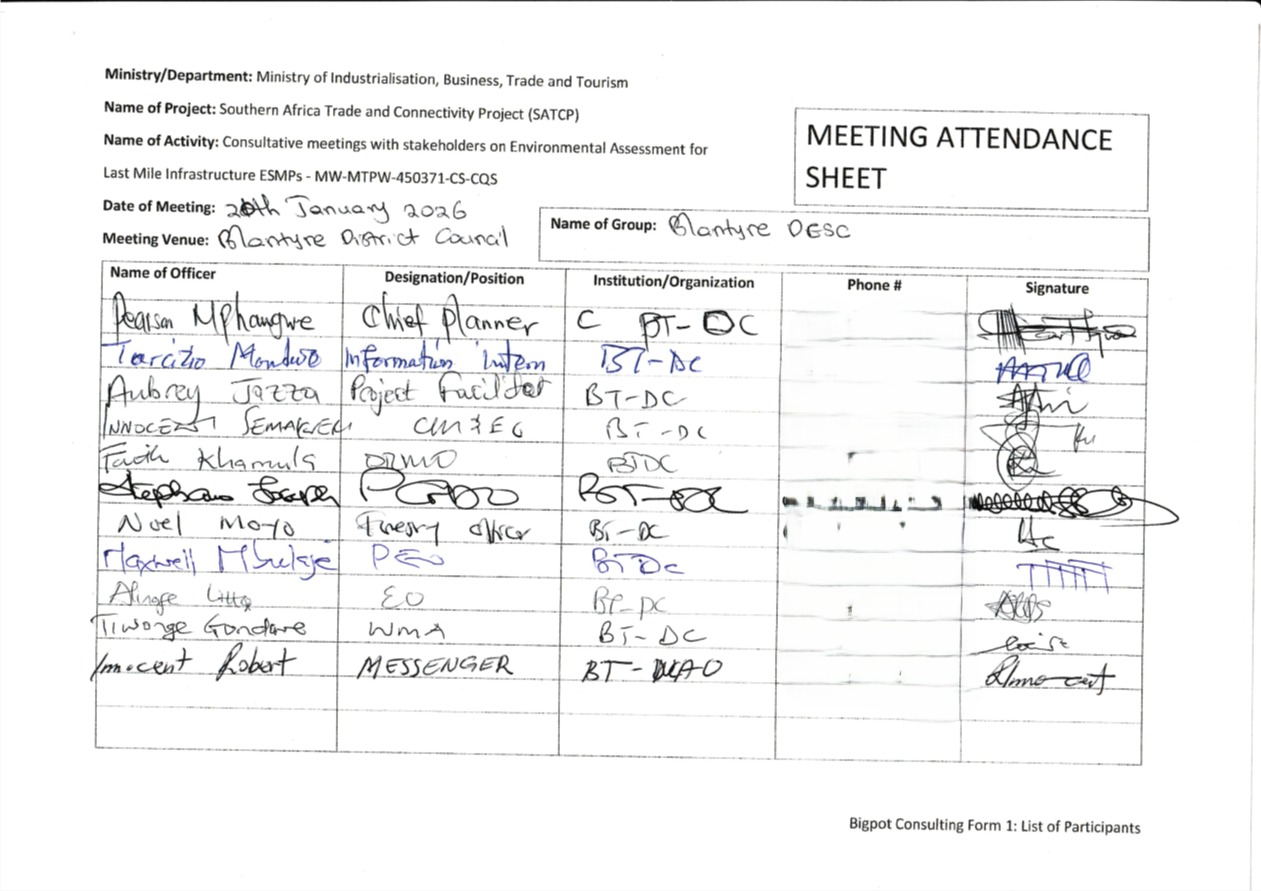 Ministry/Department: Ministry of Industrialisation, Business, Trade and Tourism
Name of Project: Southern Africa Trade and Connectivity Project (SATCP)
Name of Activity: Consultative meetings with stakeholders on Environmental Assessment for
Last Mile Infrastructure ESMPs - MW-MTPW-450371-CS-CQS
MEETING ATTENDANCE
SHEET
Date of Meeting: 20th January 2026
Meeting Venue: Blantyre District Council
Name of Group: Blantyre DESC
Name of Officer Designation/Position Institution/Organization Phone # Signature
Pearson Mphangwe Chief Planner C BT-DC
Tarcizio Information Intern BT-DC
Aubrey Jazza Project Facilitator BT-DC
INNOCENT BT-DC
Faith Khamula DRMO BTDC
Joseph BT-DC
Noel Moyo Forestry officer BT-DC
Maxwell PEO BTDC
EO BT-DC
Tiwonge Gondwe WMA BT-DC
Innocent Robert MESSENGER BT-
Bigpot Consulting Form 1: List of Participants